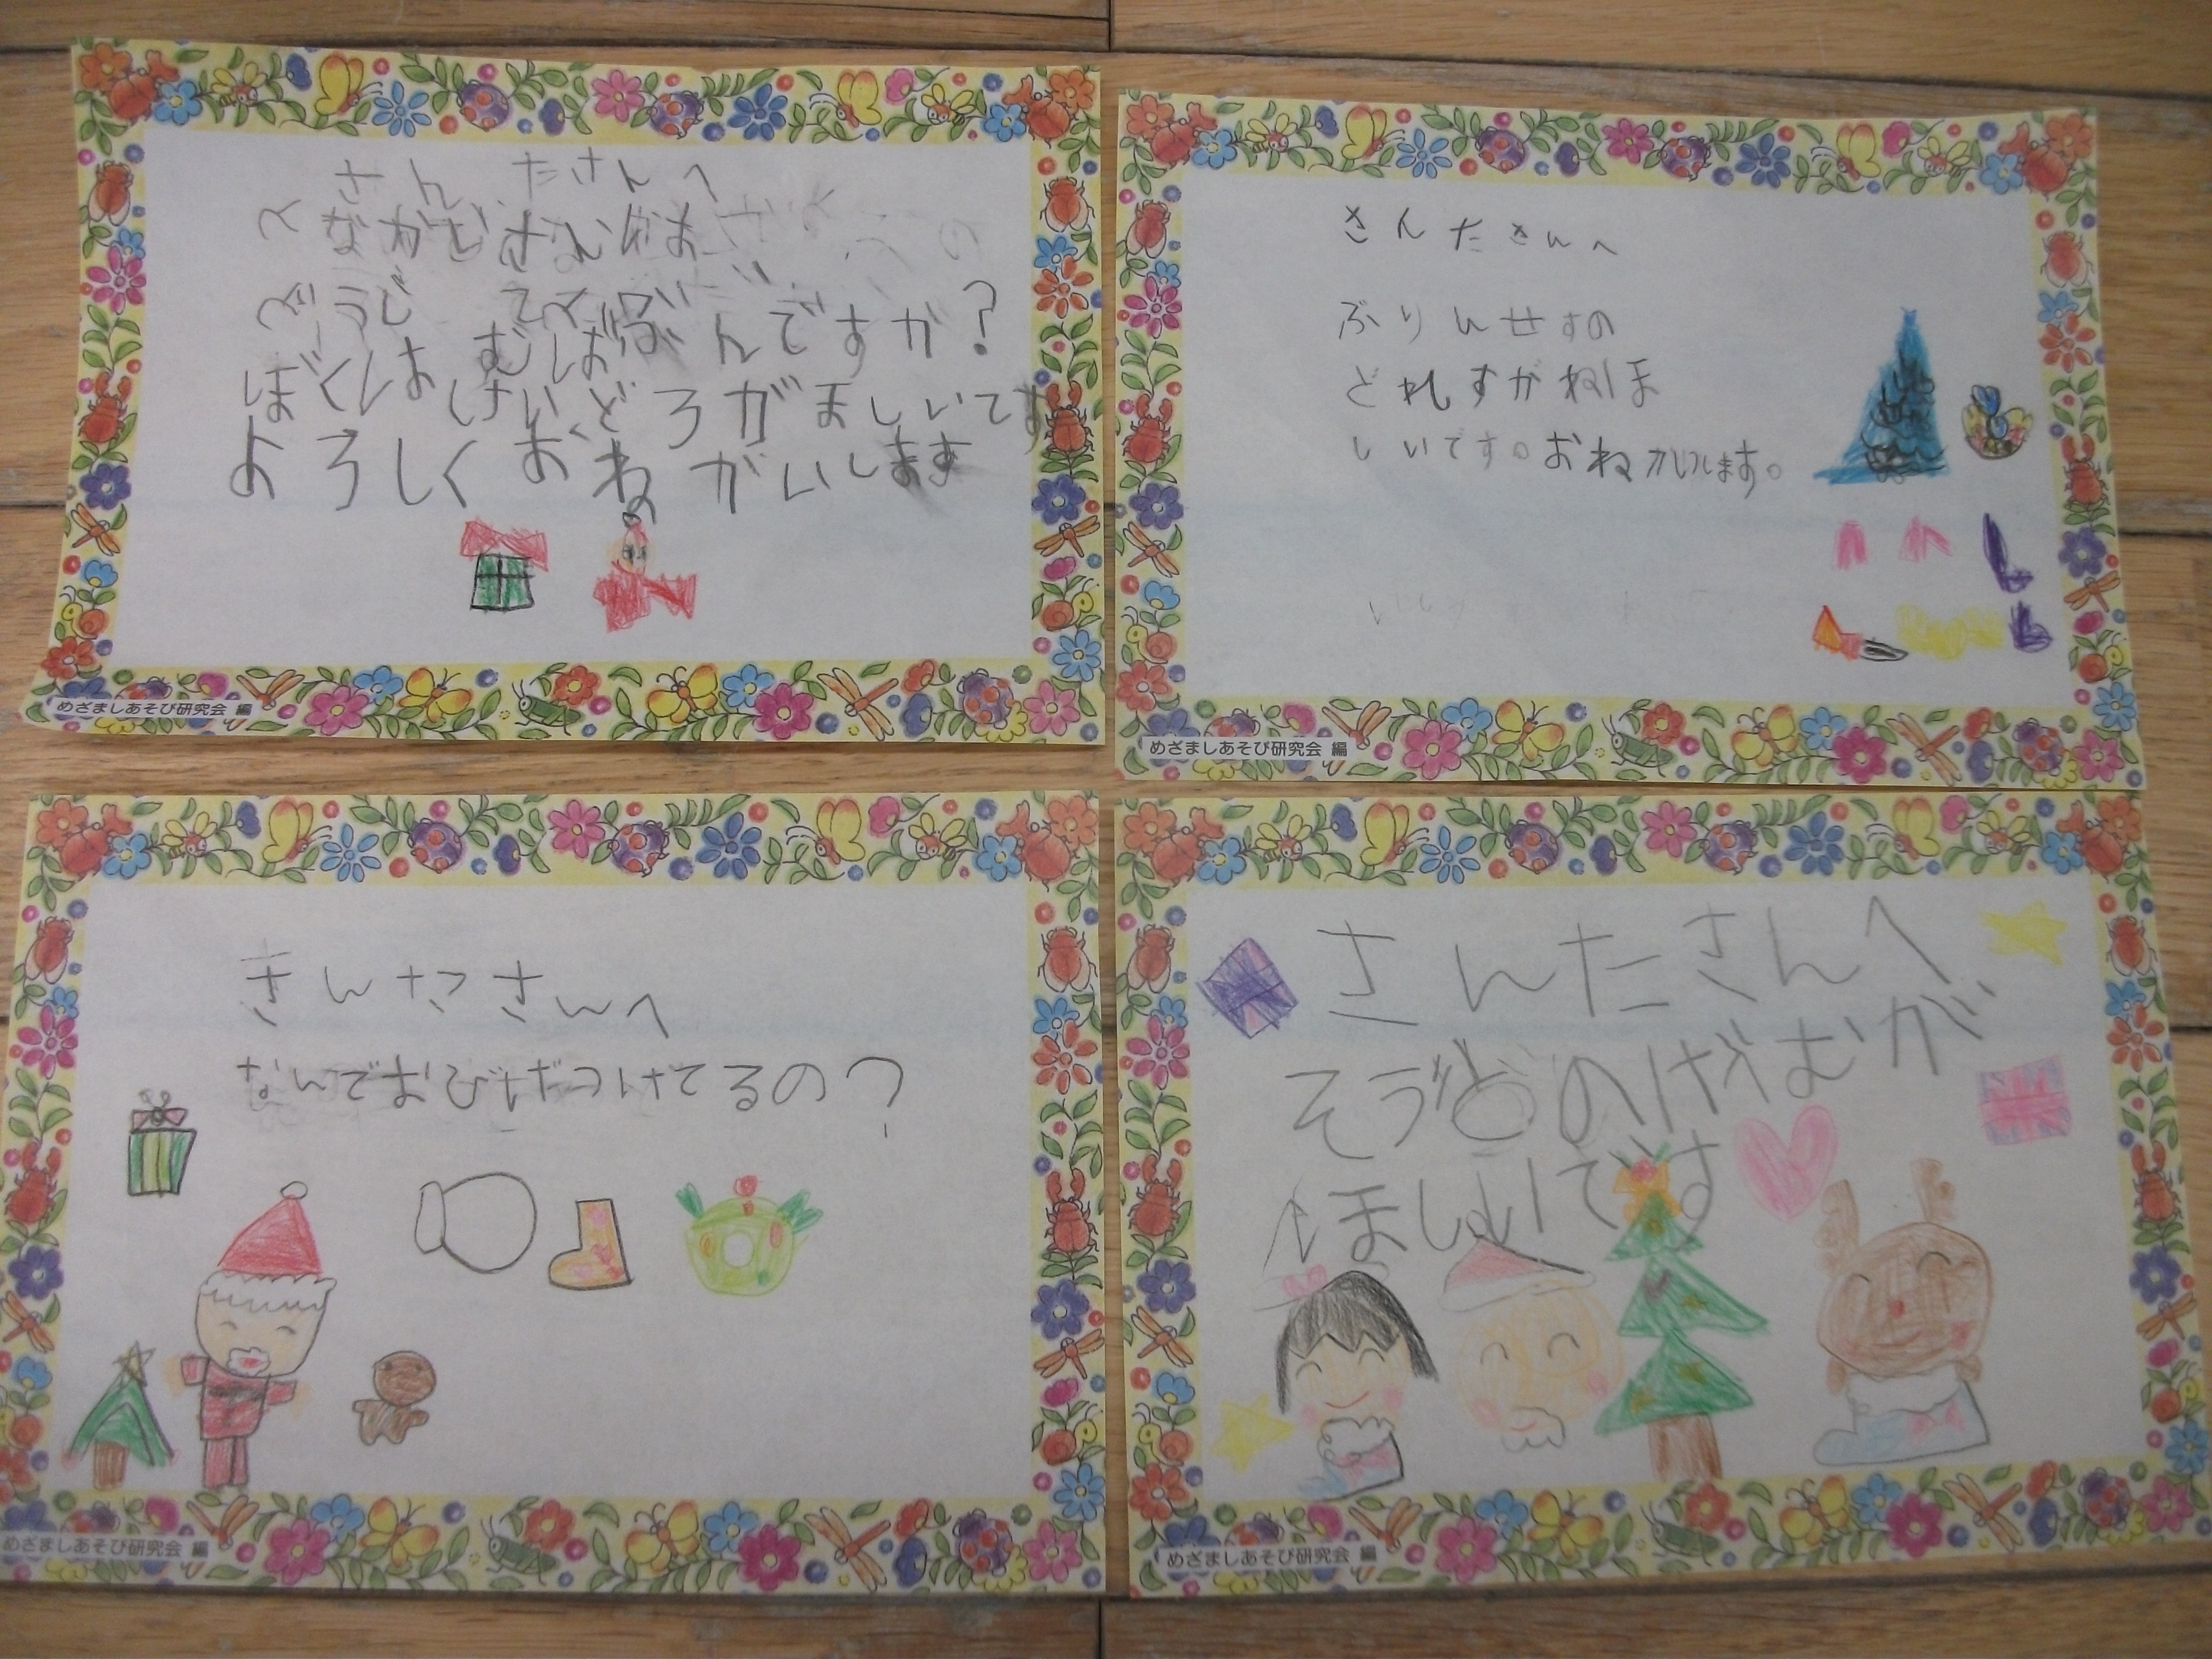 さんたさんへ
となかいさんは
どうじて
ぼくは
んですか?
けいどろがましいです
よろしくおねがいします
めざましあそび研究会 編
さんたさんへ
ぶりんせすの
どれすがねほ
しいです。おねがいします。
めざましあそび研究会 編
さんたさんへ
なんでおひげつけてるの?
めざましあそび研究会 編
さんたさんへ
そうどのげえむが
ほしいです
めざましあそび研究会 編